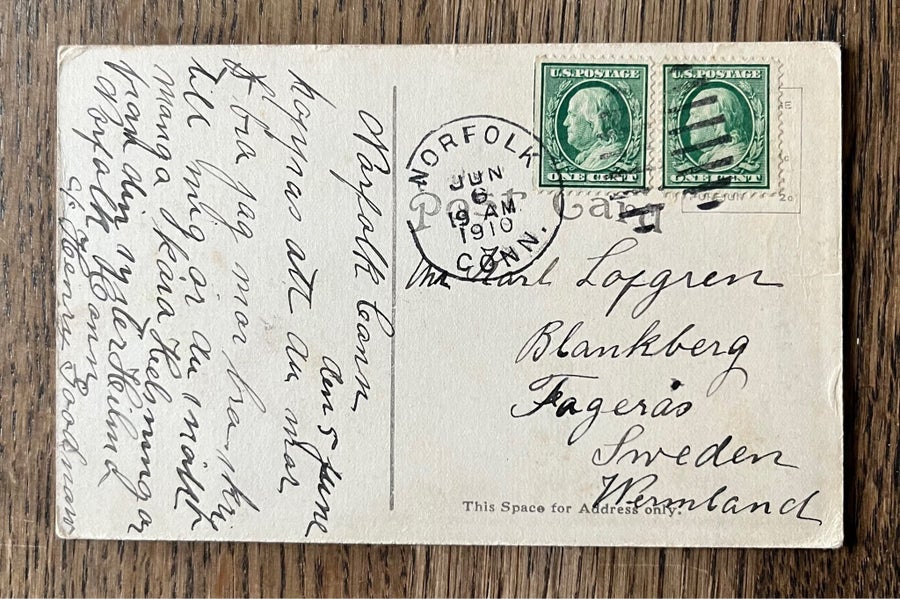 Norfolk Conn
den 5 June
hoppas att du mår
bra jag mor bra skr
till mig är du snäll
manga kära Helsningar
från din syster
Norfolk Conn
Henry
NORFOLK
JUN
6
9 AM
1910
CONN.
U.S. POSTAGE
ONE CENT
U.S. POSTAGE
ONE CENT
Post Card
Karl Lofgren
Blankberg
Fagerås
Sweden
Wermland
This Space for Address only.